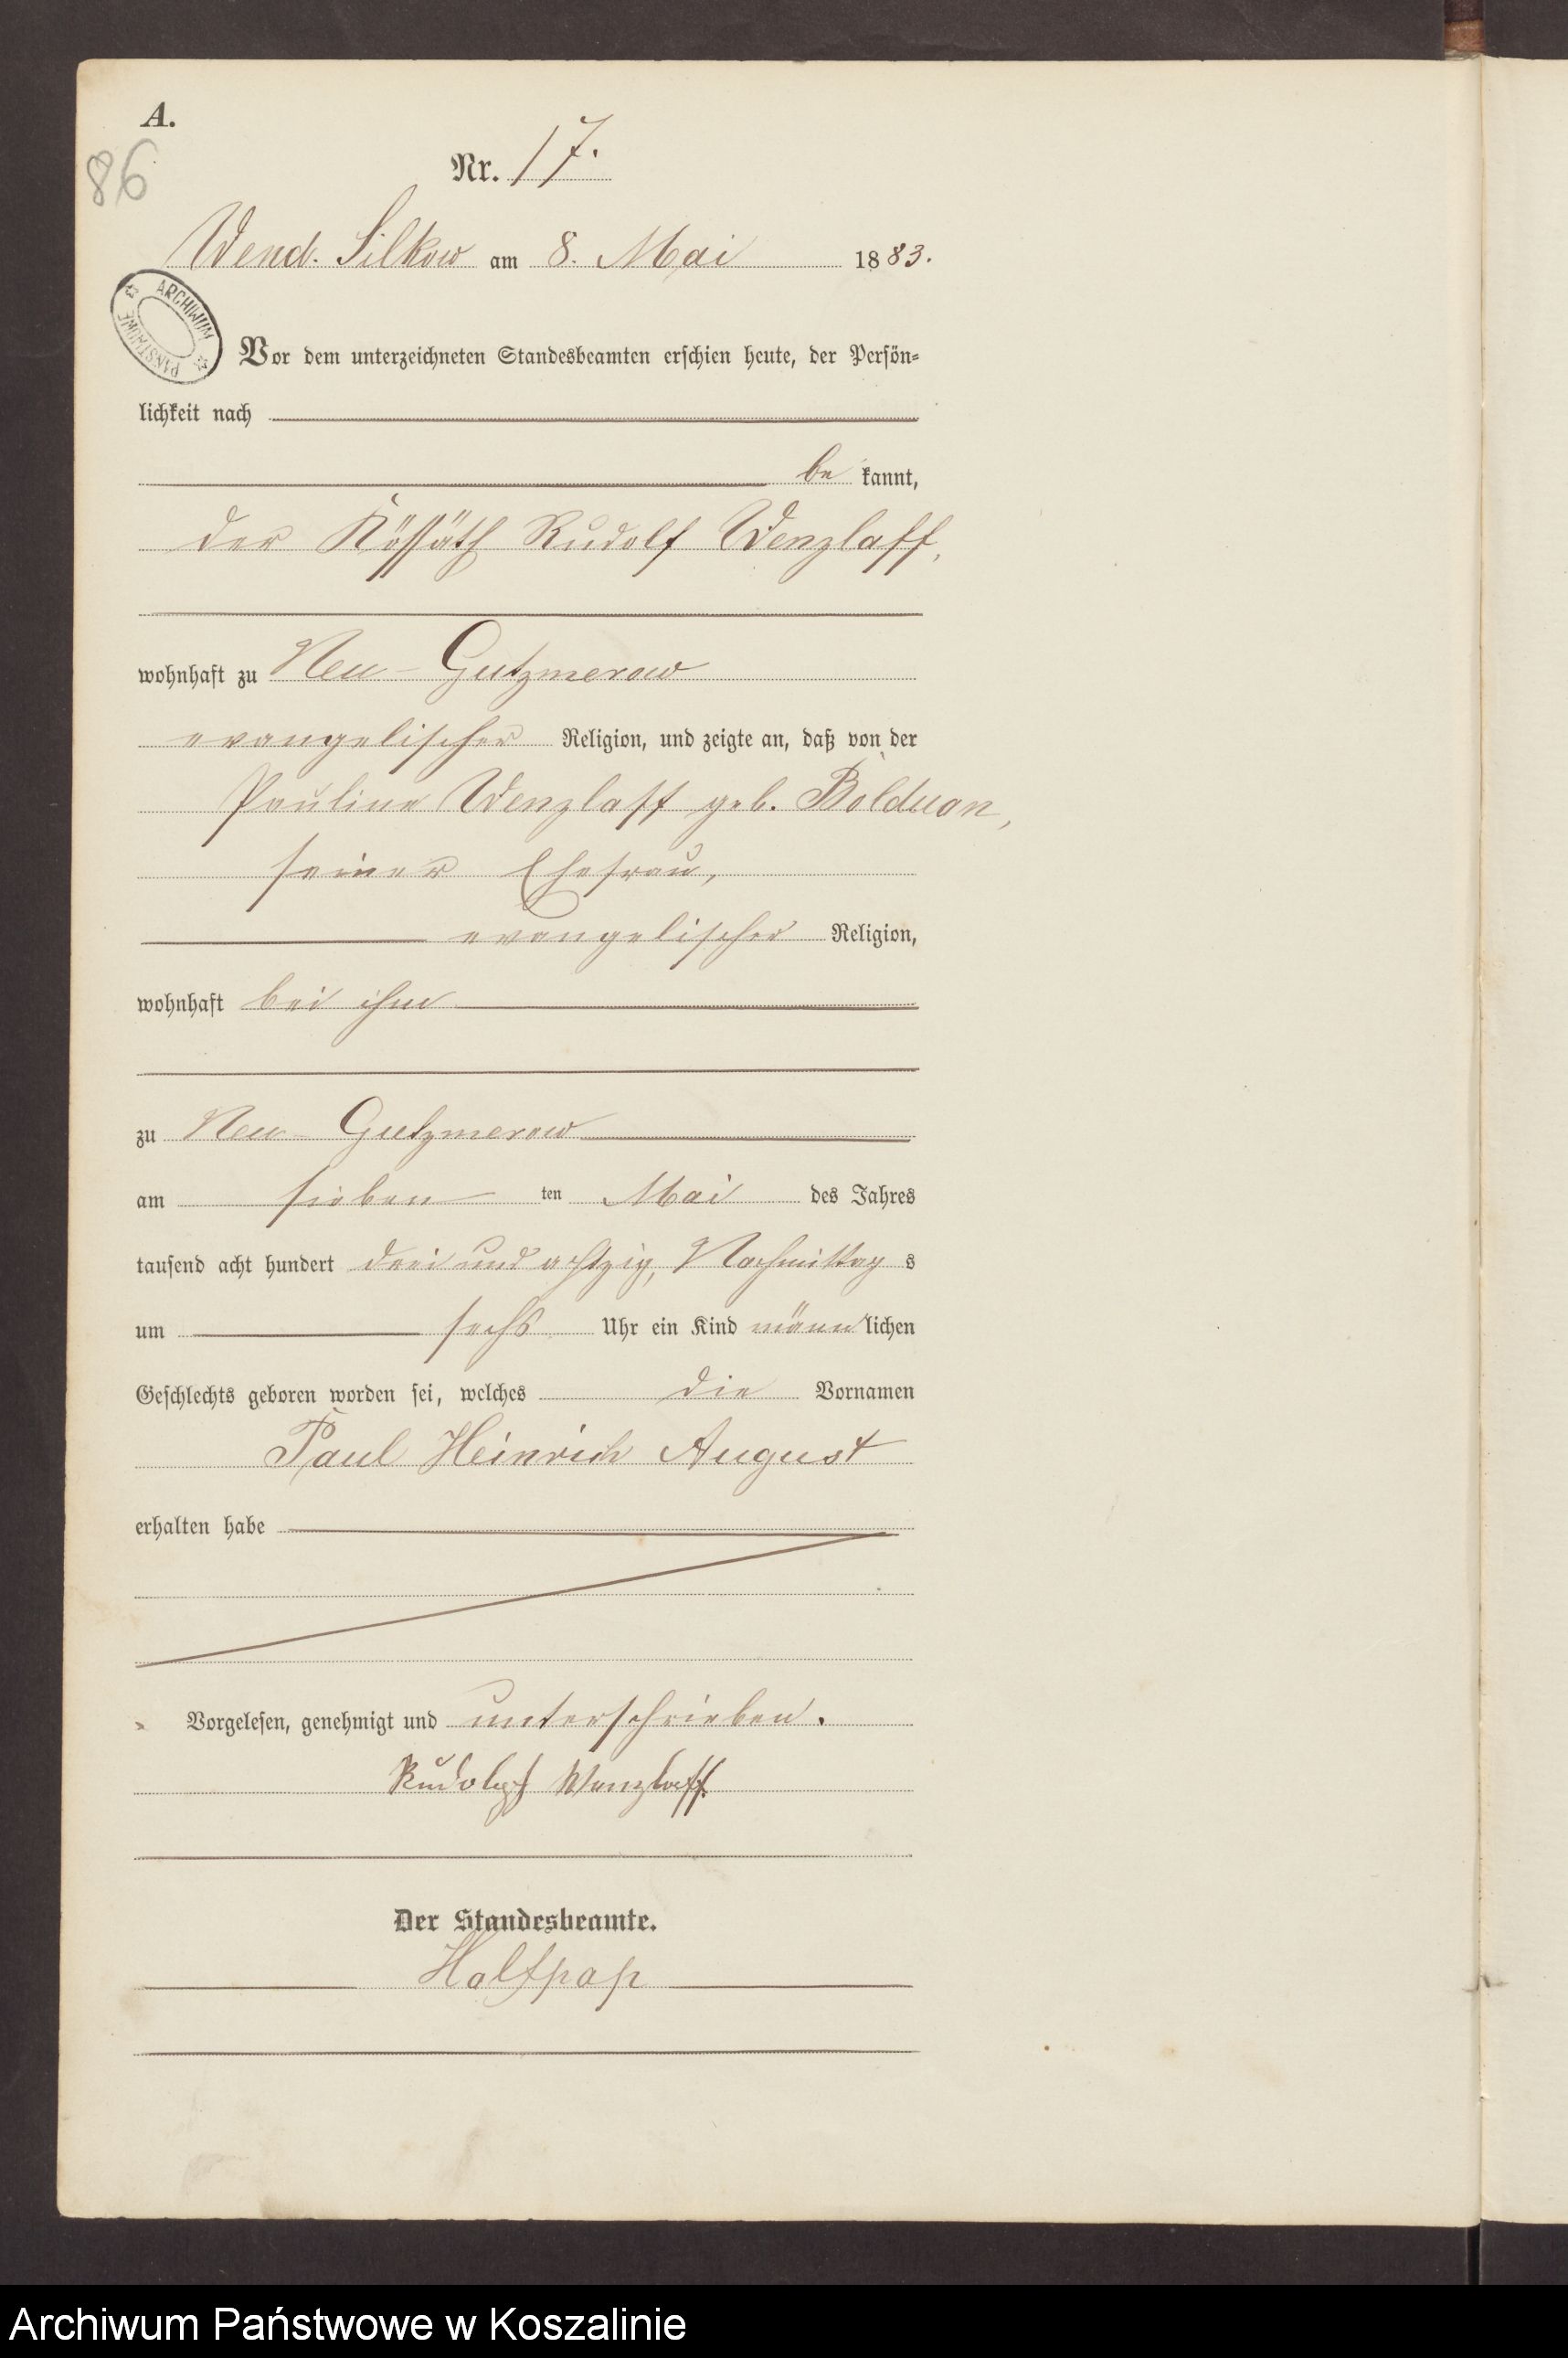 A.
86
Nr. 17.
Wend. Silkow am 8. Mai 1883.
ARCHIWUM PAŃSTWOWE
Vor dem unterzeichneten Standesbeamten erschien heute, der Persön=
lichkeit nach
be kannt,
der Kossäth Rudolf Wenzlaff,
wohnhaft zu Neu-Gutzmerow
evangelischer Religion, und zeigte an, daß von der
Pauline Wenzlaff geb. Bolduan,
seiner Ehefrau,
evangelischer Religion,
wohnhaft bei ihm
zu Neu-Gutzmerow
am sieben ten Mai des Jahres
tausend acht hundert drei und achtzig, Nachmittag s
um sechs Uhr ein Kind männlichen
Geschlechts geboren worden sei, welches die Vornamen
Paul Heinrich August
erhalten habe
Vorgelesen, genehmigt und unterschrieben.
Rudolph Wenzlaff
Der Standesbeamte.
Holtpap
Archiwum Państwowe w Koszalinie